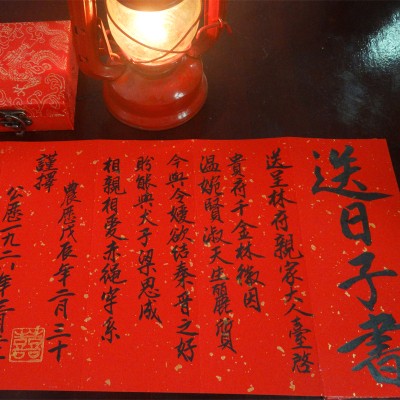 送日子書
送呈林府親家大人臺啓
貴府千金林徽因
温婉賢淑天生麗質
今與令嫒欲结秦晋之好
盼能與犬子梁思成
相親相爱赤绳牢系
謹擇
農歷戊辰年二月三十
公歷一九二八年三月
囍